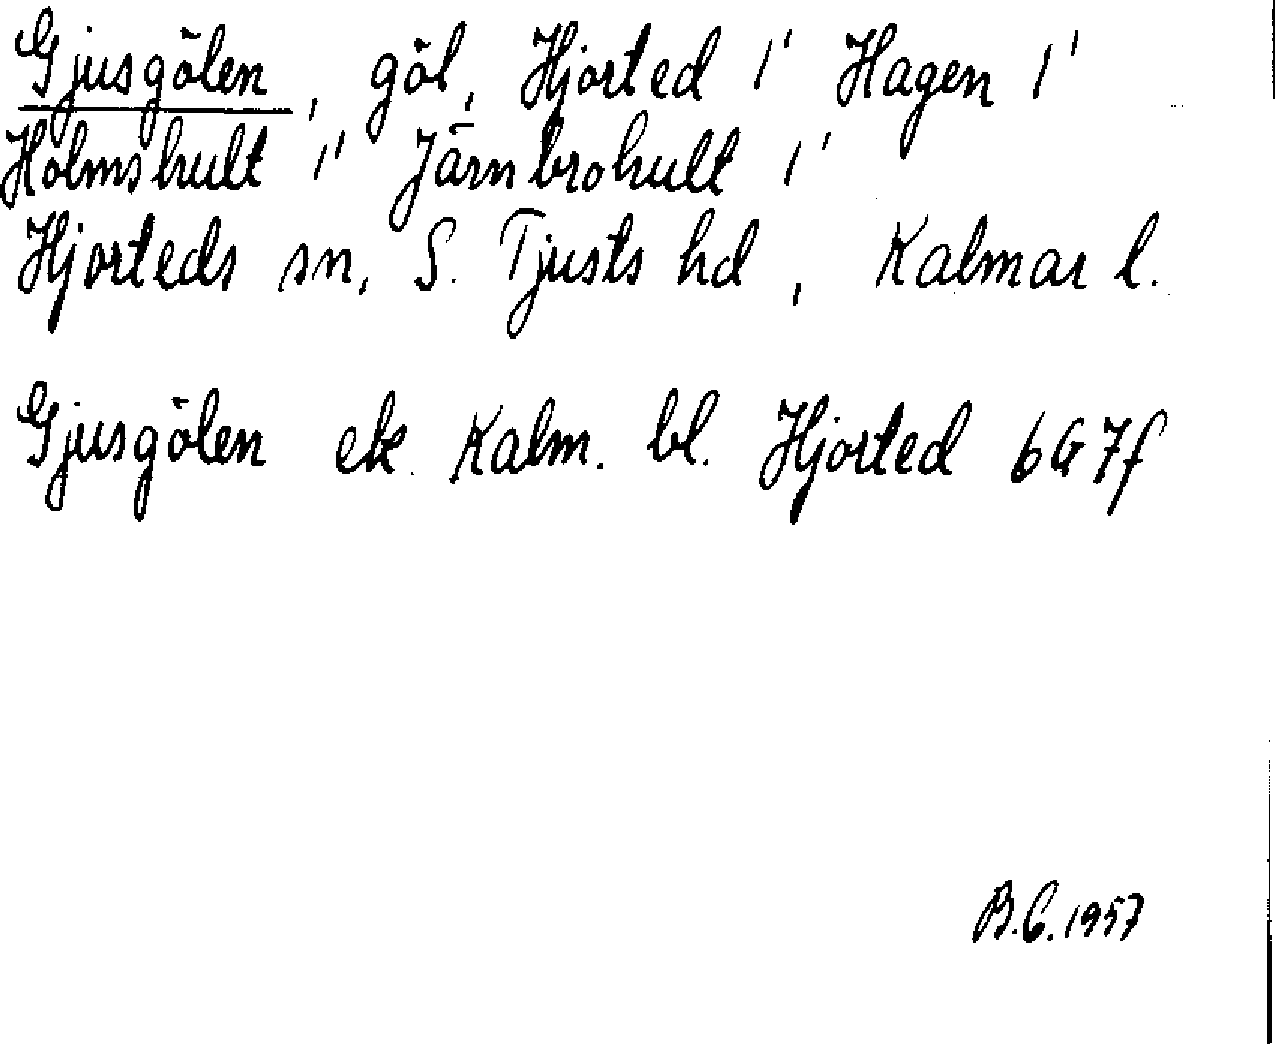 Gjusgölen, göl, Hjorted 1' Hagen 1'
Holmshult 1' Järnbrohult 1'
Hjorteds sn, S. Tjusts hd, Kalmar l.
Gjusgölen ek. Kalm. bl. Hjorted 6G7f
B.C. 1957